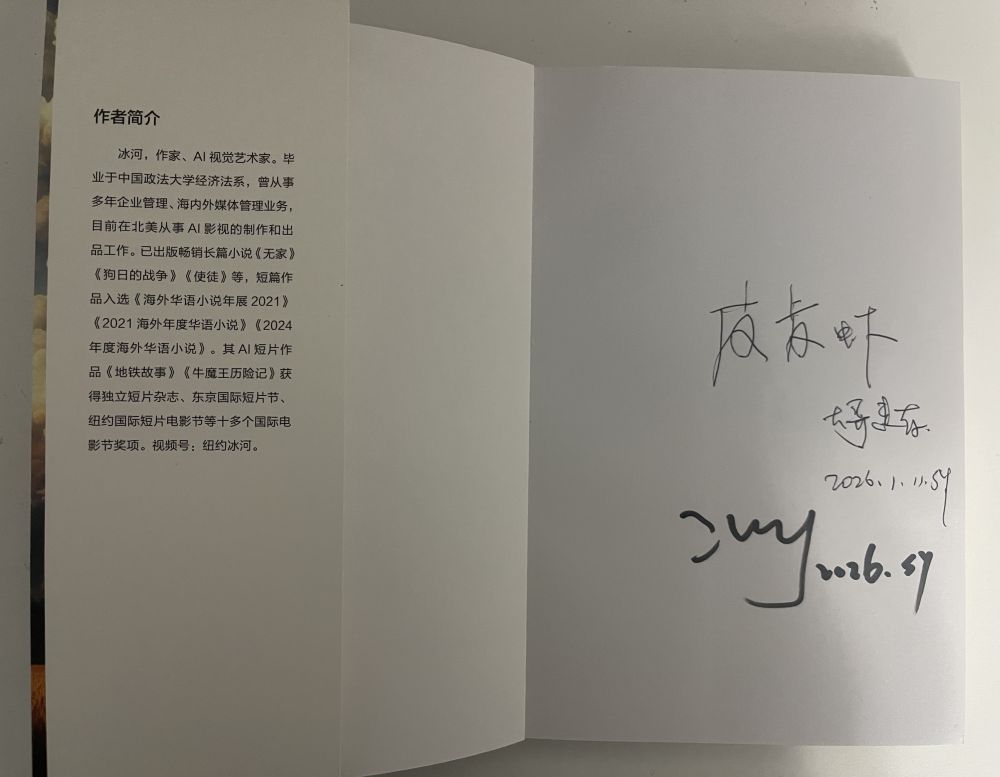 作者简介
冰河，作家、AI 视觉艺术家。毕
业于中国政法大学经济法系，曾从事
多年企业管理、海内外媒体管理业务，
目前在北美从事 AI 影视的制作和出
品工作。已出版畅销长篇小说《无家》
《狗日的战争》《使徒》等，短篇作
品入选《海外华语小说年展 2021》
《2021 海外年度华语小说》《2024
年度海外华语小说》。其 AI 短片作
品《地铁故事》《牛魔王历险记》获
得独立短片杂志、东京国际短片节、
纽约国际短片电影节等十多个国际电
影节奖项。视频号：纽约冰河。
皮皮虾
2026.1.11.SY
2026.SY